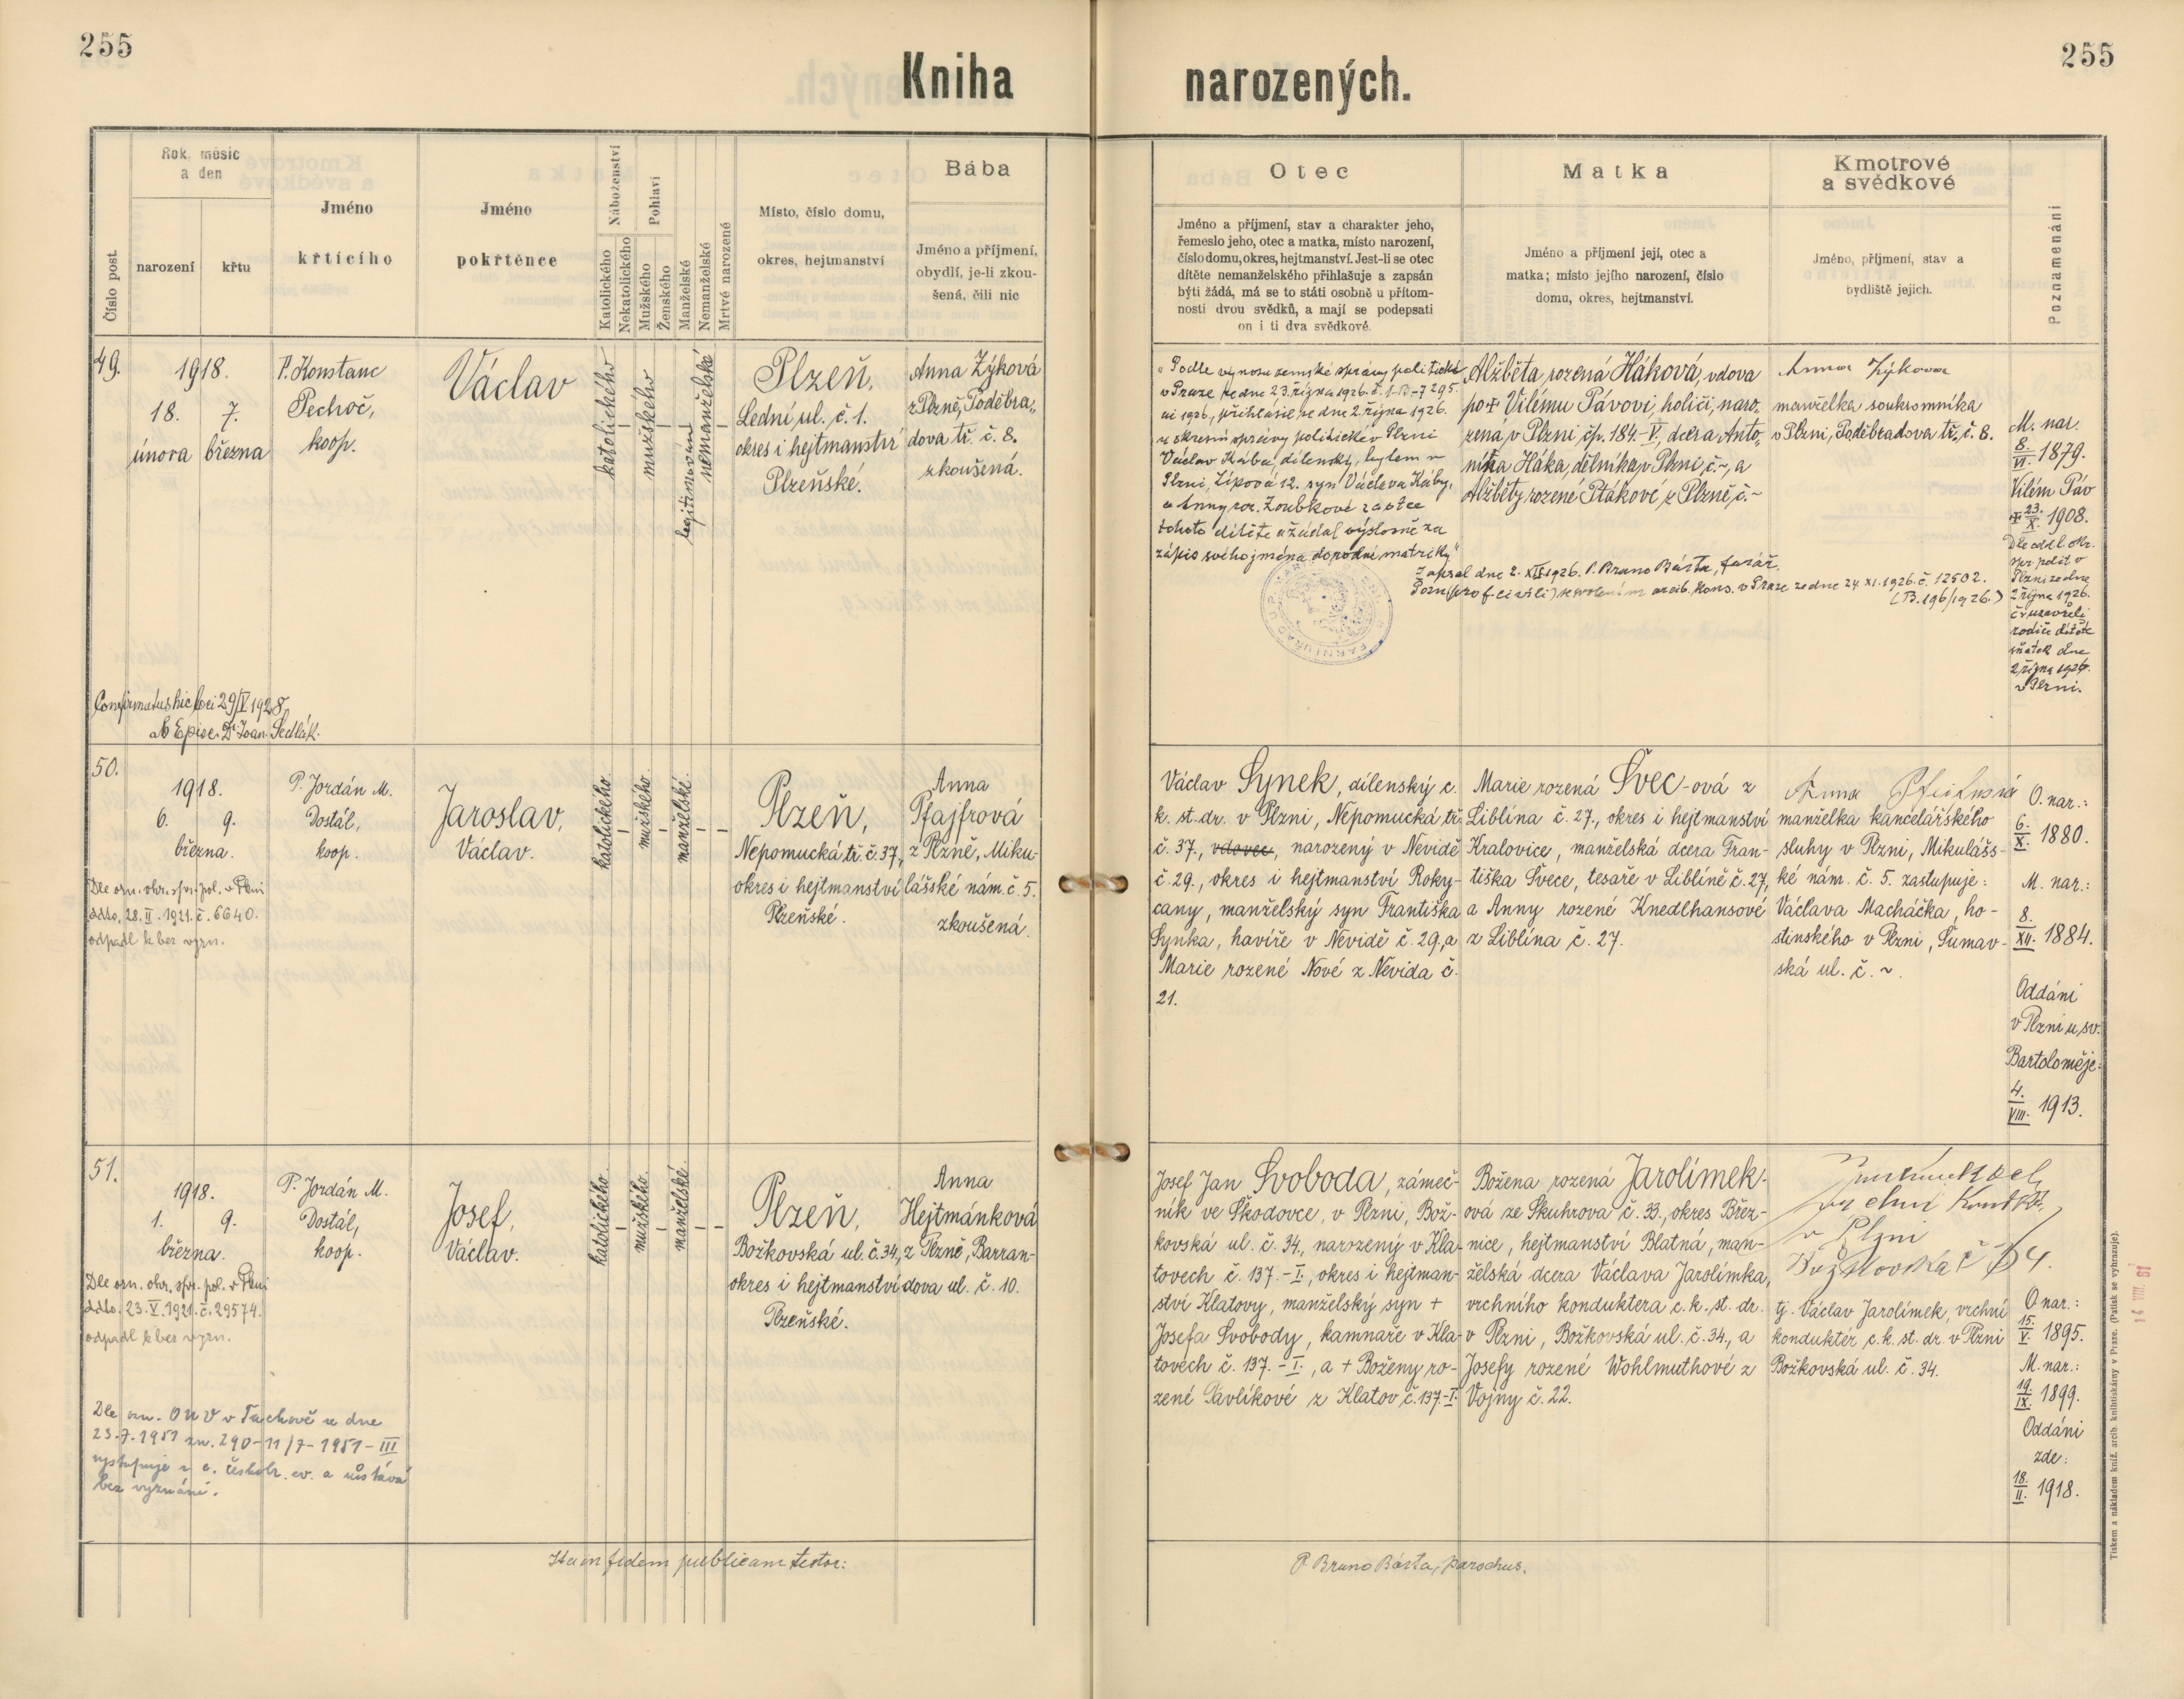 255
Kniha narozených.
255
Číslo post.
Rok, měsíc
a den
narození
křtu
Jméno
křtícího
Jméno
pokřtěnce
Náboženství
Katolického
Nekatolického
Pohlaví
Mužského
Ženského
Manželské
Nemanželské
Mrtvě narozené
Místo, číslo domu,
okres, hejtmanství
Bába
Jméno a příjmení,
obydlí, je-li zkou-
šená, čili nic
Otec
Jméno a příjmení, stav a charakter jeho,
řemeslo jeho, otec a matka, místo narození,
číslo domu, okres, hejtmanství. Jest-li se otec
dítěte nemanželského přihlašuje a zapsán
býti žádá, má se to státi osobně u přítom-
nosti dvou svědků, a mají se podepsati
on i ti dva svědkové.
Matka
Jméno a příjmení její, otec a
matka; místo jejího narození, číslo
domu, okres, hejtmanství.
Kmotrové
a svědkové
Jméno, příjmení, stav a
bydliště jejich.
Poznamenání
49.
1918.
18. 7.
února března
P. Konstanc
Pechoč,
koop.
Václav
katolického
–
mužského
–
legitimován
nemanželské
–
Plzeň,
Lední ul. č. 1.
okres i hejtmanství
Plzeňské.
Anna Zýková
z Plzně, Poděbra-
dova tř. č. 8.
zkoušená.
"Podle výnosu zemské správy politické
v Praze ze dne 23. října 1926. č.
ai 1926, přihlásil se dne 2. října 1926.
u okresní správy politické v Plzni
Václav Kába, dílenský, bytem v
Plzni, Lipová 12. syn Václava Káby,
a Anny roz. Zoubkové za otce
tohoto dítěte a žádal výslovně za
zápis svého jména do rodné matriky."
Zapsal dne 2. XII. 1926. P. Bruno Bárta, farář.
arcib. kons. v Praze ze dne 24. XI. 1926. č. 12502.
(B. 196/1926.)
Alžběta rozená Háková, vdova
po + Vilému Pávovi, holiči, naro-
zená v Plzni, čp. 184.-V., dcera Anto-
nína Háka, dělníka v Plzni, č. ~, a
Alžběty rozené Ptákové z Plzně, č. ~
Anna Zýková
manželka soukromníka
v Plzni, Poděbradova tř., č. 8.
M. nar.
8./VI. 1879.
Vilém Páv
+ 23./X. 1908.
Dle odd. l. okr.
spr. polit. v
Plzni ze dne
2. října 1926.
uzavřeli
rodiče dítěte
sňatek dne
2. října 1926.
v Plzni.
Confirmatus hic loci 29/V 1928
ab Episc. Dr. Joan. Sedlák.
50.
1918.
6. 9.
března.
P. Jordán M.
Dostál,
koop.
Jaroslav,
Václav.
katolického.
–
mužského.
–
manželské.
–
–
Plzeň,
Nepomucká tř. č. 37,
okres i hejtmanství
Plzeňské.
Anna
Pfajfrová
z Plzně, Miku-
lášské nám. č. 5.
zkoušená.
Dle ozn. okr. spr. pol. v Plzni
ddto. 28. II. 1921. č. 6640.
odpadl k bez vyzn.
Václav Synek, dílenský c.
k. st. dr. v Plzni, Nepomucká tř.
č. 37., vdovec, narozený v Nevidě
č. 29., okres i hejtmanství Roky-
cany, manželský syn Františka
Synka, havíře v Nevidě č. 29., a
Marie rozené Nové z Nevida č.
21.
Marie rozená Švec-ová z
Liblína č. 27., okres i hejtmanství
Kralovice, manželská dcera Fran-
tiška Švece, tesaře v Liblíně č. 27,
a Anny rozené Knedlhansové
z Liblína č. 27.
Anna
manželka kancelářského
sluhy v Plzni, Mikulášs-
ké nám. č. 5. zastupuje:
Václava Macháčka, ho-
stinského v Plzni, Šumav-
ská ul. č. ~.
O. nar.:
6./X. 1880.
M. nar.:
8./XII. 1884.
Oddáni
v Plzni u sv.
Bartoloměje:
4./VIII. 1913.
51.
1918.
1. 9.
března.
P. Jordán M.
Dostál,
koop.
Josef,
Václav.
katolického.
–
mužského.
–
manželské.
–
–
Plzeň,
Božkovská ul. č. 34,
okres i hejtmanství
Plzeňské.
Anna
Hejtmánková
z Plzně, Barran-
dova ul. č. 10.
Dle ozn. okr. spr. pol. v Plzni
ddto. 23. V. 1921. č. 29574.
odpadl k bez vyzn.
Dle ozn. ONV v Tachově ze dne
23.7.1951 zn. 290-11/7-1951-III
vystupuje z c. českobr. ev. a zůstává
bez vyznání.
Josef Jan Svoboda, zámeč-
ník ve Škodovce, v Plzni, Bož-
kovská ul. č. 34., narozený v Kla-
tovech č. 137.-I., okres i hejtman-
ství Klatovy, manželský syn +
Josefa Svobody, kamnaře v Kla-
tovech č. 137.-I., a + Boženy ro-
zené Pavlíkové z Klatov č. 137-I.
Božena rozená Jarolímek-
ová ze Skuhrova č. 33., okres Břez-
nice, hejtmanství Blatná, man-
želská dcera Václava Jarolímka,
vrchního konduktera c. k. st. dr.
v Plzni, Božkovská ul. č. 34., a
Josefy rozené Wohlmuthové z
Vojny č. 22.
v Plzni
Božkovská č 34.
tj. Václav Jarolímek, vrchní
konduktér c. k. st. dr. v Plzni
Božkovská ul. č. 34.
O nar.:
15./V. 1895.
M. nar.:
19./IX. 1899.
Oddáni
zde:
18./II. 1918.
Ita in fidem publicam testor:
P. Bruno Bárta, parochus.
Tiskem a nákladem kníž. arcib. knihtiskárny v Praze. (Patisk se vyhrazuje).